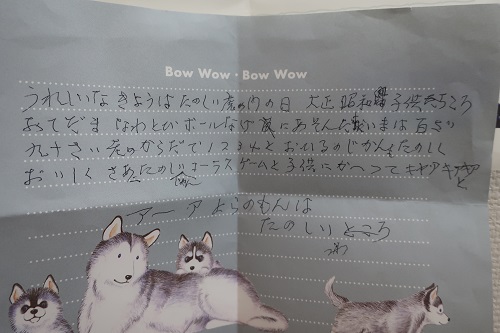 Bow Wow・Bow Wow
うれしいなきょうはたのしい虎の門の日 大正昭和子供のころ
おてだまなわとびボールなげにあそんだいまは百から
九十さい虎のからだで1234とおいるのじかんたのしく
おいしく さあたのしコーラスゲームと子供にかへってキャアキャアと
アーアとらのもんは
たのしいところ
うわ